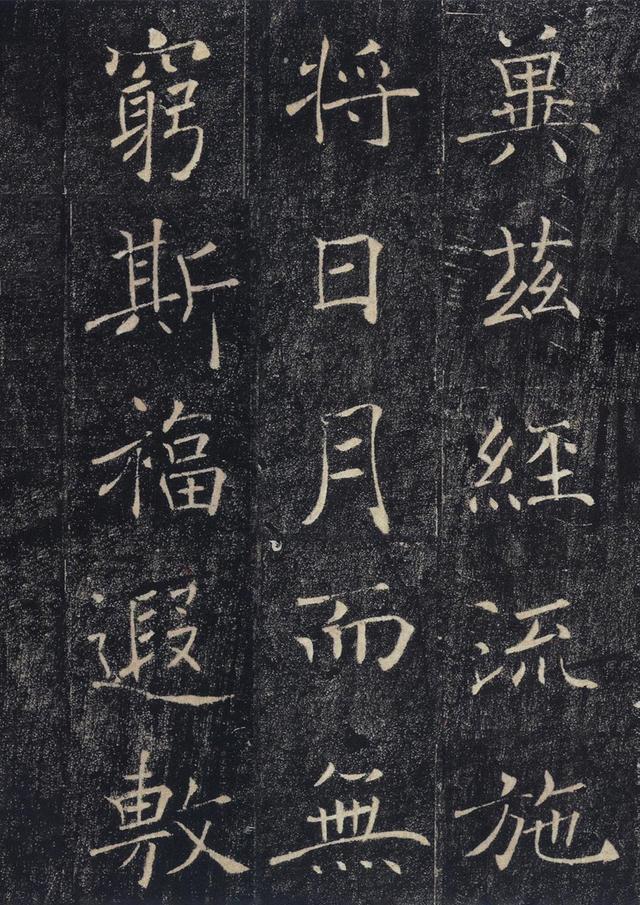 兾茲經流施
将日月而無
窮斯福遐敷